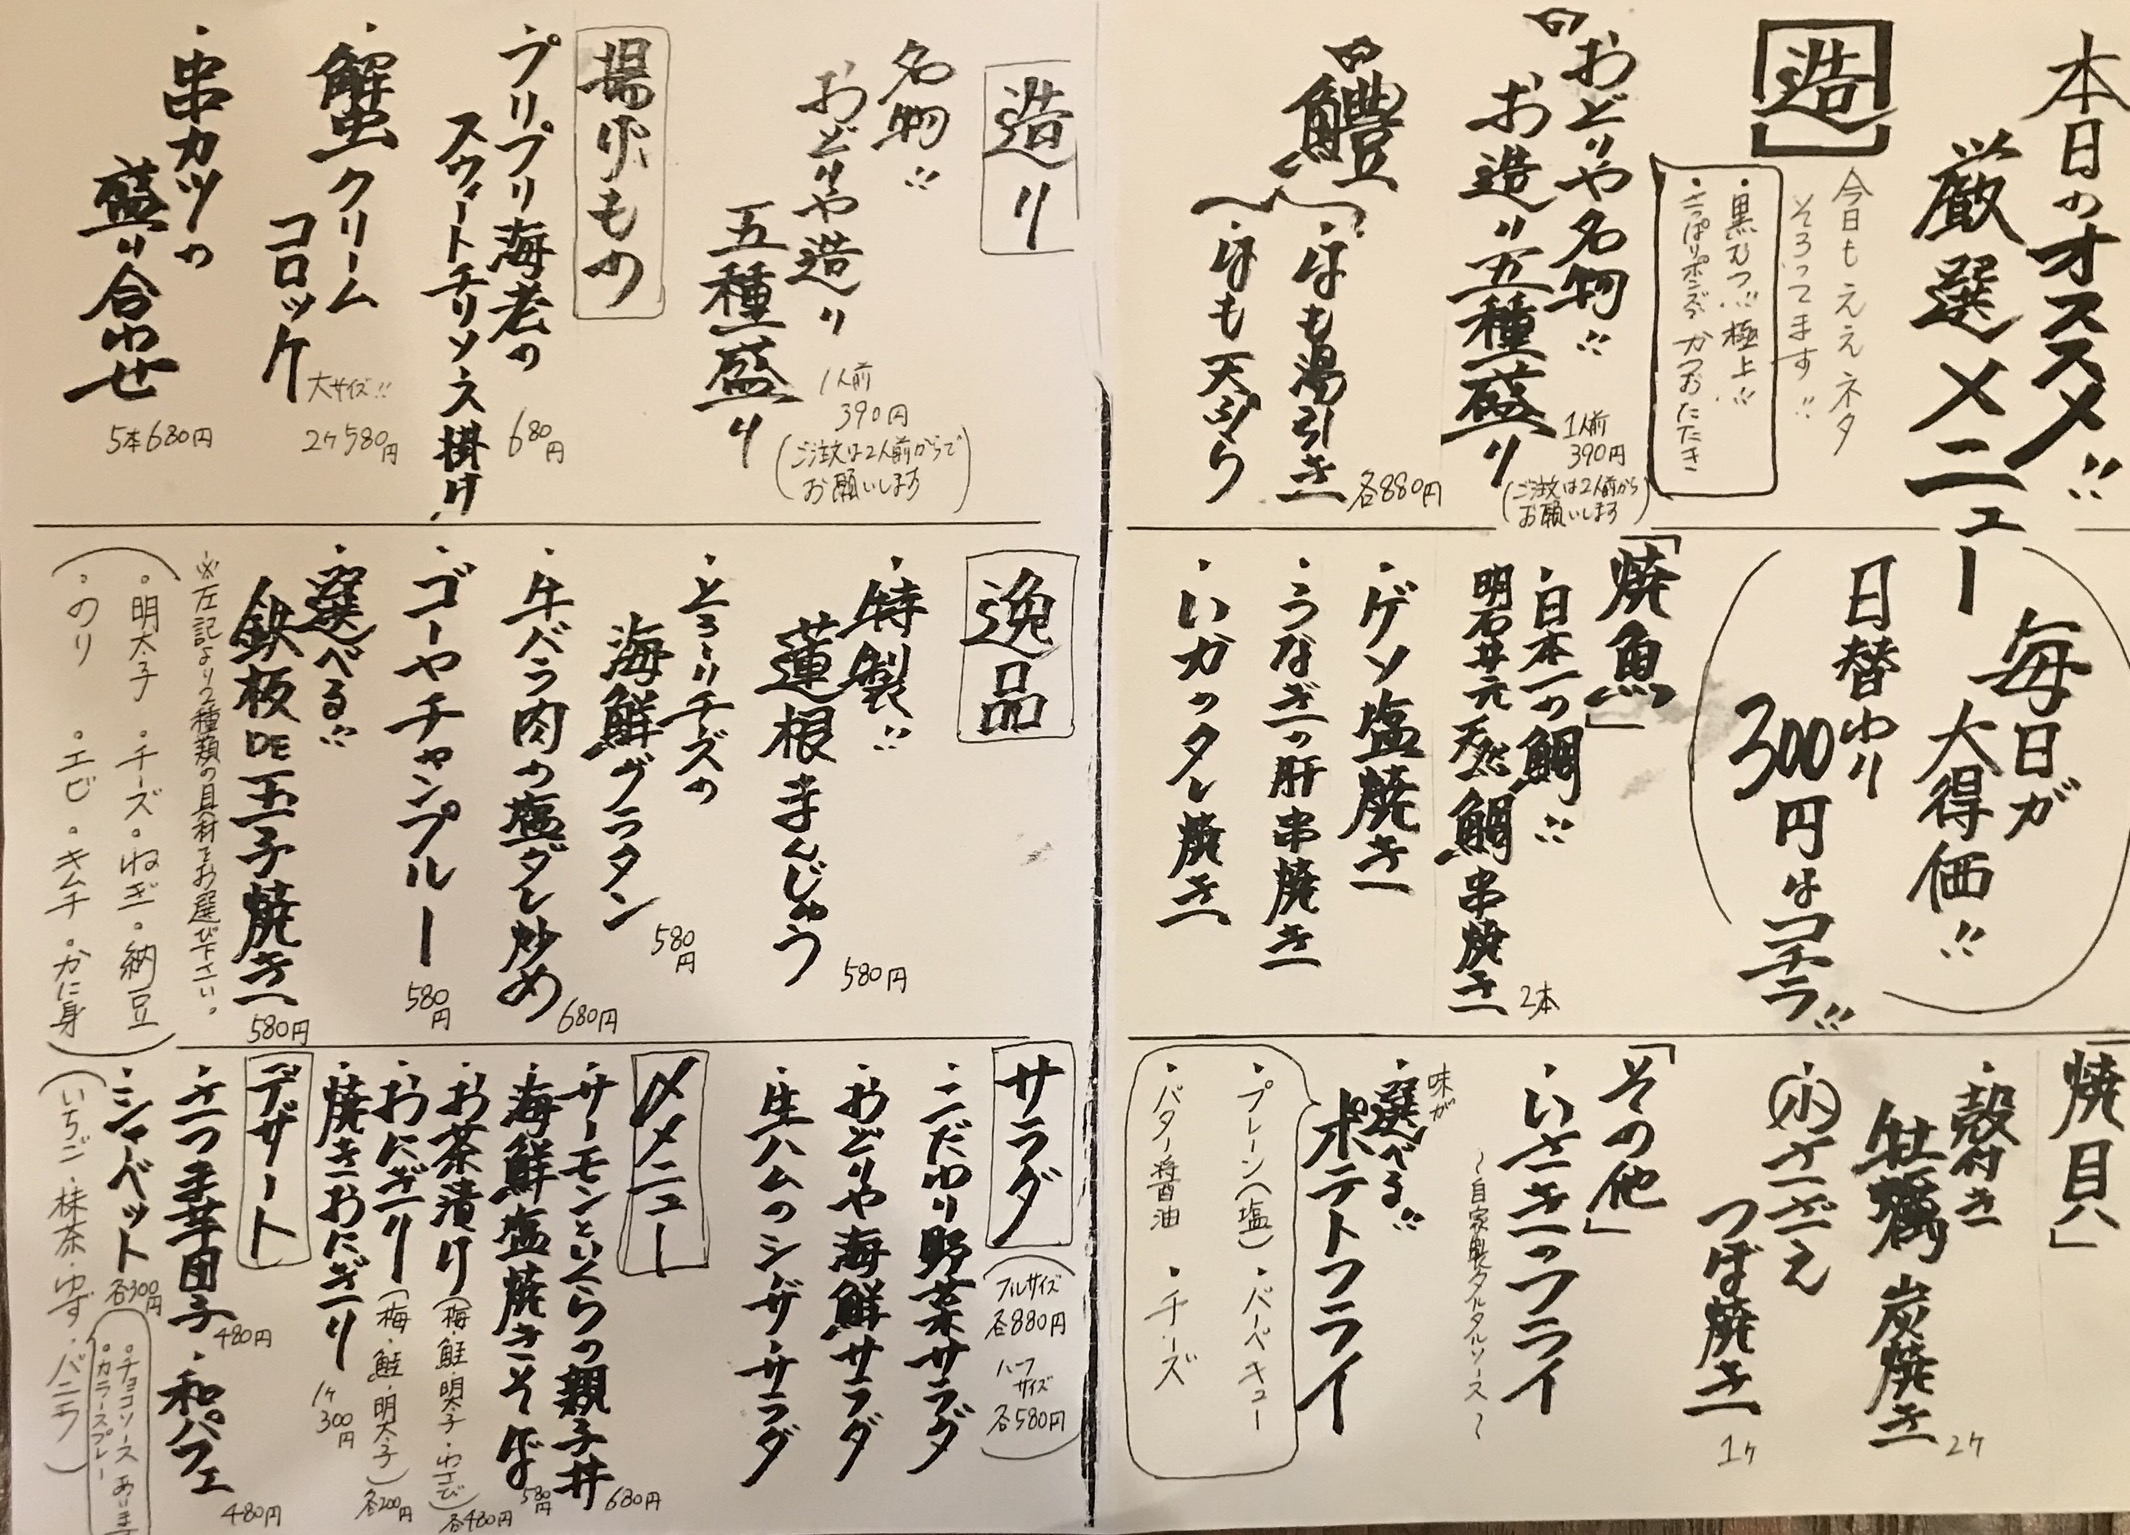 本日のオススメ!!
厳選メニュー
【造】
今日もええネタ
そろってます!!
・黒むつ!!極上!!
・さっぱりポンズでかつおたたき
おどりや名物!!
お造り五種盛り
1人前
390円
(ご注文は2人前から
お願いします)
鱧
・はも湯引き
・はも天ぷら
各880円
毎日が
大得価!!
日替わり
300円はコチラ!!
「焼魚」
・日本一の鯛!!
明石井元天然鯛串焼き
2本
・ゲソ塩焼き
・うなぎの肝串焼き
・いかのタレ焼き
「焼貝」
・殻付き
牡蠣炭焼き
2ケ
・小さざえ
つぼ焼き
1ケ
「その他」
・いさきのフライ
～自家製タルタルソース～
・味が
選べる!!
ポテトフライ
・プレーン(塩)・バーベキュー
・バター醤油・チーズ
造り
名物!!
おどりや造り
五種盛り
1人前
390円
(ご注文は2人前からで
お願いします)
揚げもの
・プリプリ海老の
スウィートチリソース掛け
680円
・蟹クリーム
コロッケ
大サイズ!!
2ケ580円
・串カツの
盛り合わせ
5本680円
逸品
・特製!!
蓮根まんじゅう
580円
・とろ~りチーズの
海鮮グラタン
580円
・牛バラ肉の塩ダレ炒め
680円
・ゴーヤチャンプルー
580円
・選べる!!
鉄板DE玉子焼き
580円
※左記より2種類の具材をお選び下さい。
(・明太子・チーズ・ねぎ・納豆
・のり・エビ・キムチ・かに身)
サラダ
(フルサイズ
各880円
ハーフ
サイズ
各580円)
・こだわり野菜サラダ
・おどりや海鮮サラダ
・生ハムのシーザーサラダ
〆メニュー
・サーモンといくらの親子丼
680円
・海鮮塩焼きそば
580円
・お茶漬け(梅・鮭・明太子・わさび)
各480円
・おにぎり(梅・鮭・明太子)
各200円
・焼きおにぎり
1ケ
300円
デザート
・さつま芋団子
480円
・和パフェ
480円
・シャーベット
各300円
・チョコソース
・カラースプレー
あります
(いちご・抹茶・ゆず・バニラ)